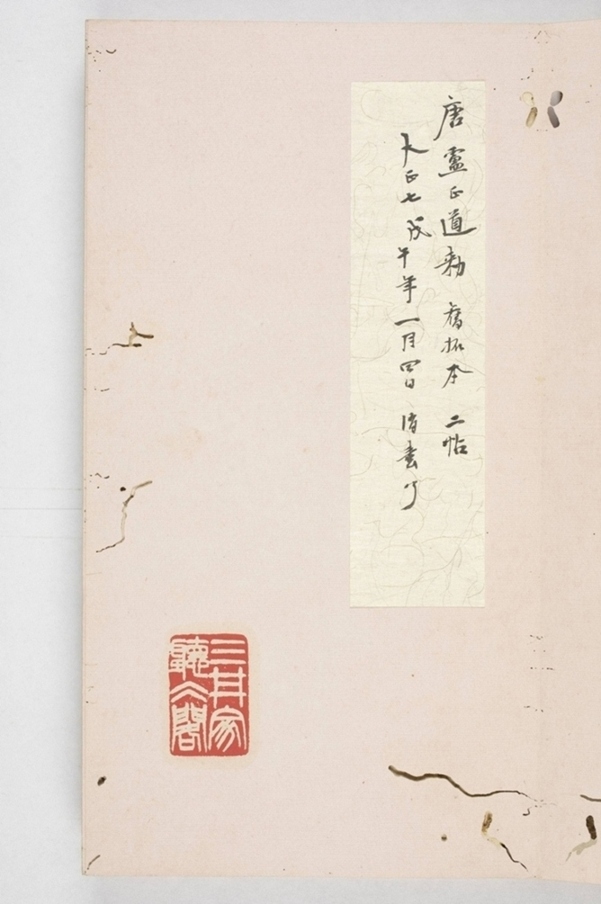 唐盧正道勅 舊拓本 二帖
大正七戊午年一月四日 清書了
三井家
聽冰閣